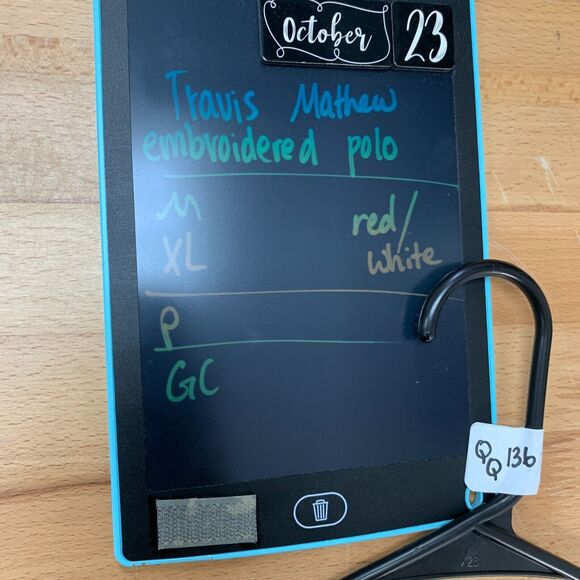 October 23
Travis Mathew
embroidered polo
M red/
XL white
P
GC
QQ 136